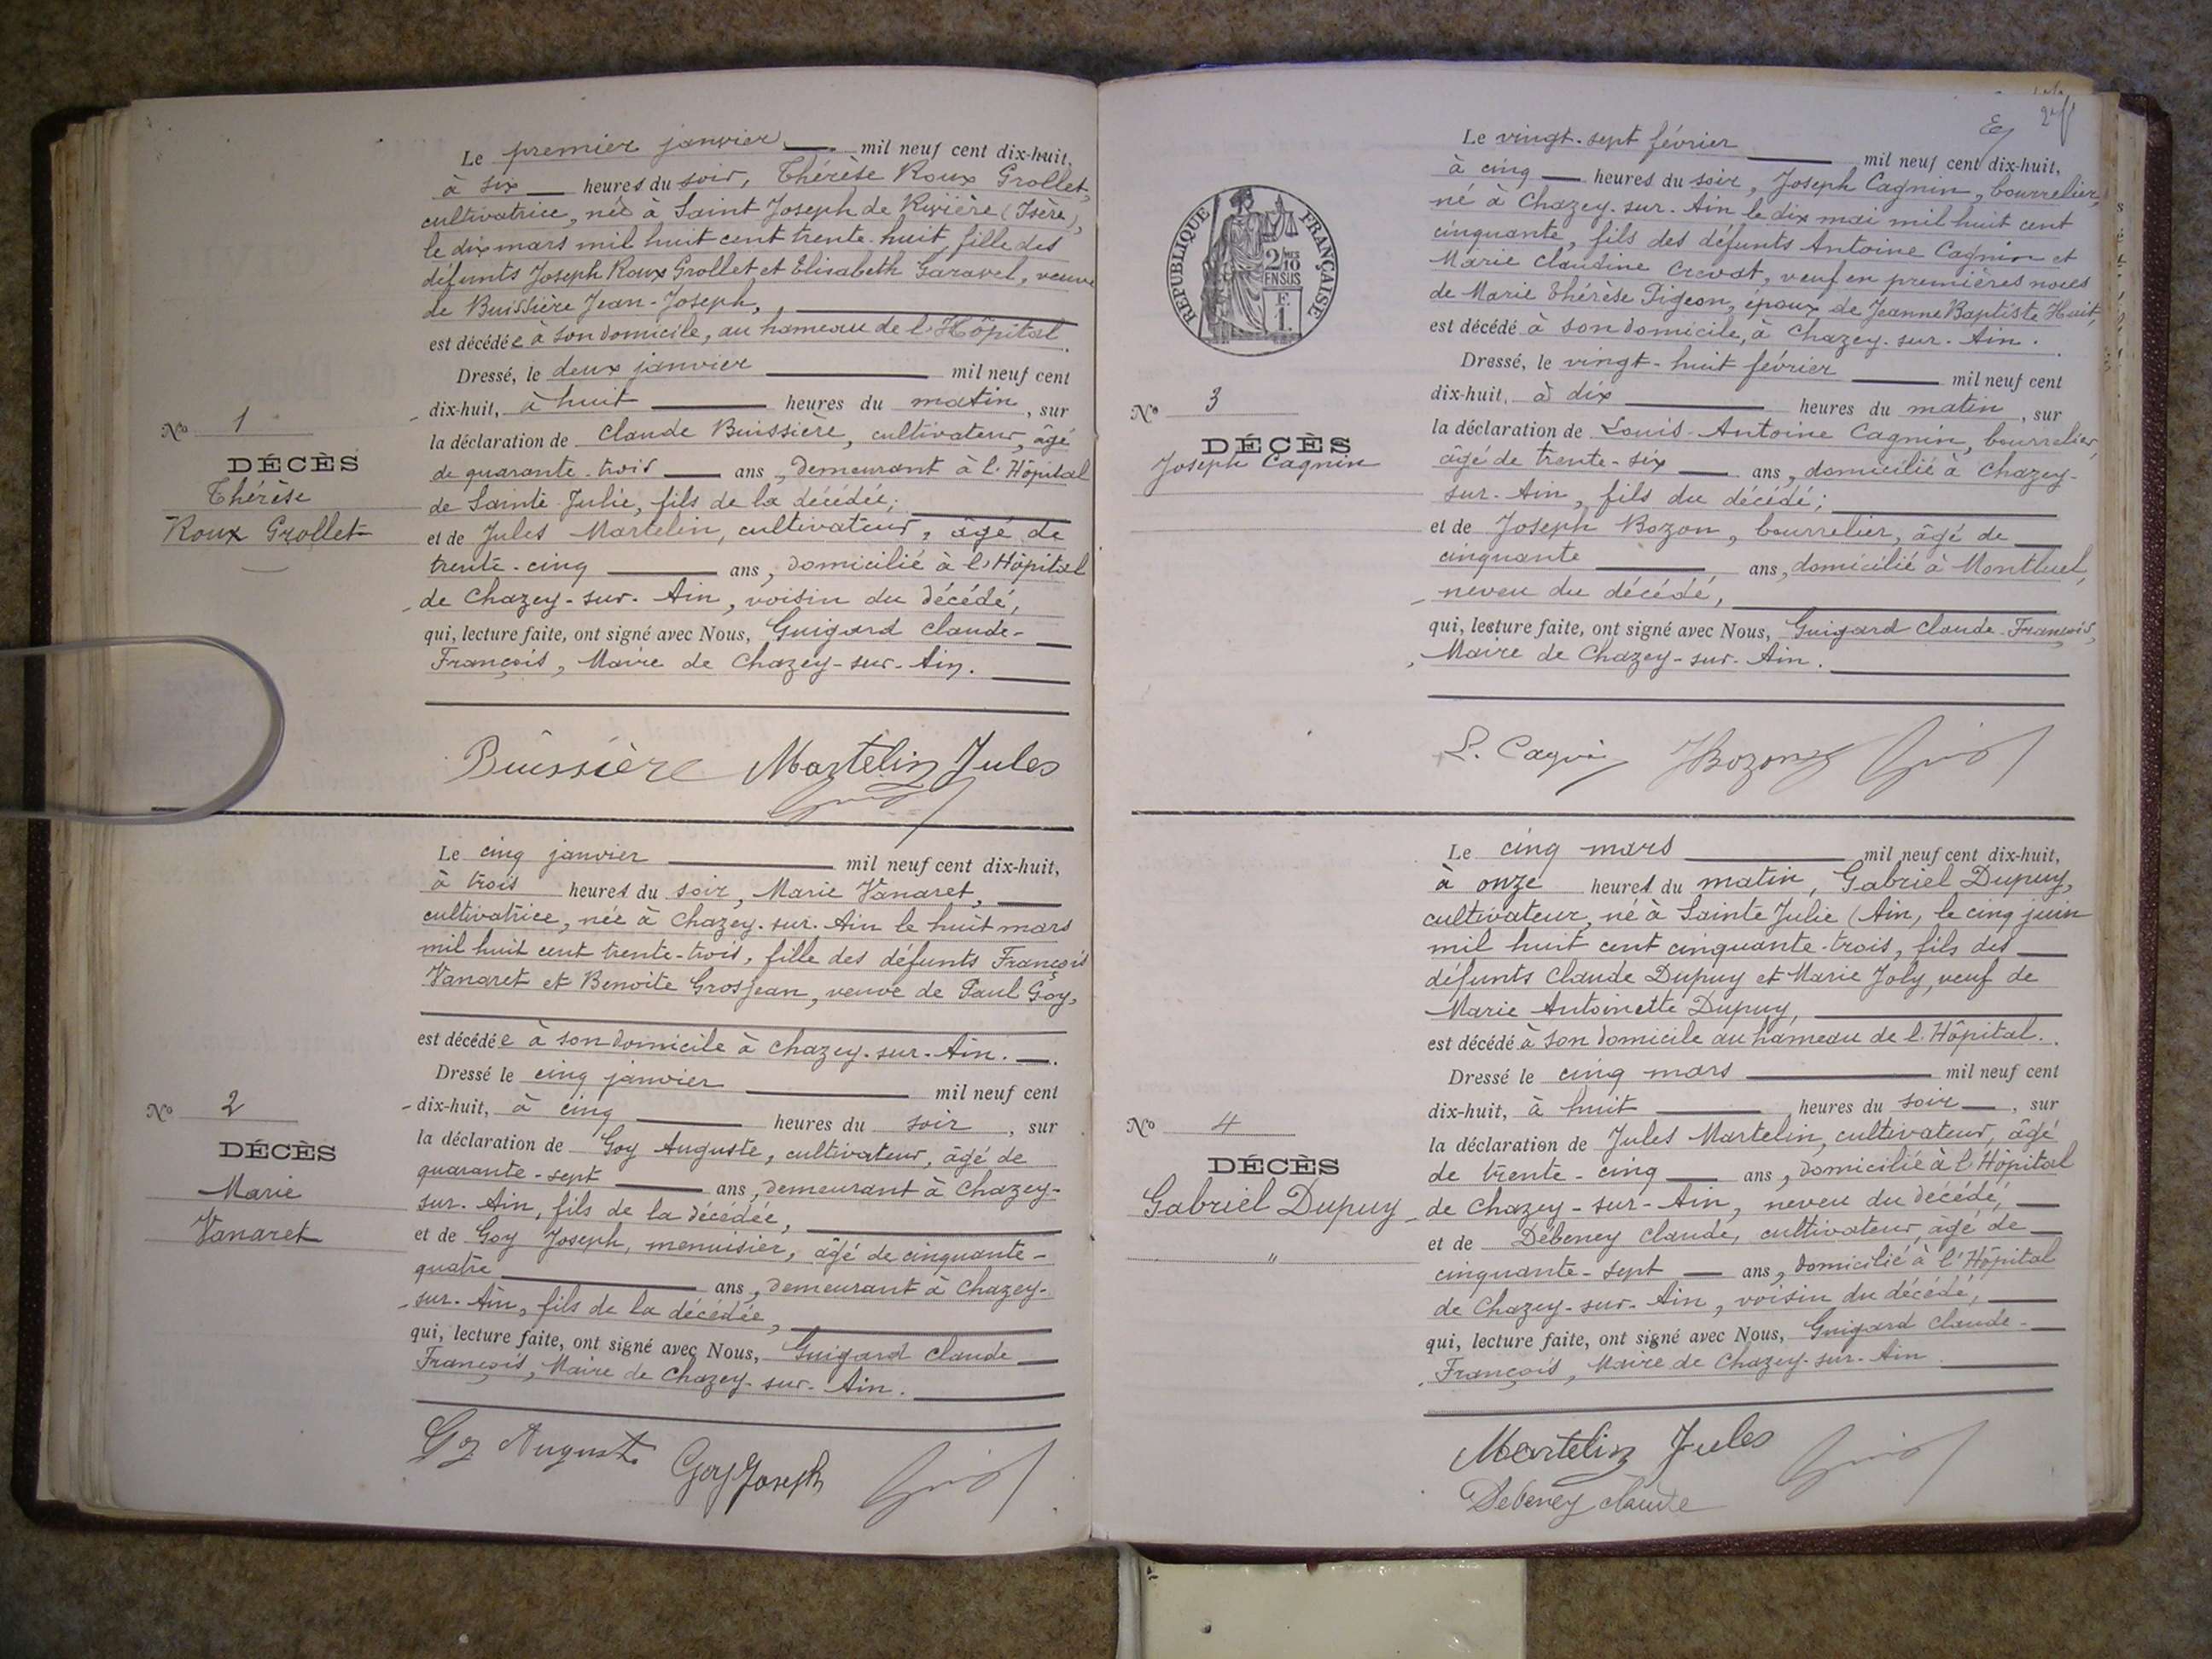 Le premier janvier mil neuf cent dix-huit,
à six heures du soir, Thérèse Roux Grollet,
cultivatrice, née à Saint Joseph de Rivière (Isère),
le dix mars mil huit cent trente-huit, fille des
défunts Joseph Roux Grollet et Elisabeth Garavel, veuve
de Buissière Jean-Joseph,
est décédée à son domicile, au hameau de l'Hôpital.
Dressé, le deux janvier mil neuf cent
dix-huit, à huit heures du matin, sur
la déclaration de Claude Buissière, cultivateur, âgé
de quarante-trois ans, demeurant à l'Hôpital
de Sainte Julie, fils de la décédée;
et de Jules Martelin, cultivateur, âgé de
trente-cinq ans, domicilié à l'Hôpital
de Chazey-sur-Ain, voisin du décédé,
qui, lecture faite, ont signé avec Nous, Guigard Claude-
François, Maire de Chazey-sur-Ain.
Nº 1
DÉCÈS
Thérèse
Roux Grollet
Buissière Martelin Jules
Le cinq janvier mil neuf cent dix-huit,
à trois heures du soir, Marie Vanaret,
cultivatrice, née à Chazey-sur-Ain le huit mars
mil huit cent trente-trois, fille des défunts François
Vanaret et Benoite Grosjean, veuve de Paul Goy,
est décédée à son domicile à Chazey-sur-Ain.
Dressé le cinq janvier mil neuf cent
dix-huit, à cinq heures du soir, sur
la déclaration de Goy Auguste, cultivateur, âgé de
quarante-sept ans, demeurant à Chazey-
sur-Ain, fils de la décédée,
et de Goy Joseph, menuisier, âgé de cinquante-
quatre ans, demeurant à Chazey-
sur-Ain, fils de la décédée,
qui, lecture faite, ont signé avec Nous, Guigard Claude
François, Maire de Chazey-sur-Ain.
Nº 2
DÉCÈS
Marie
Vanaret
Goy Auguste Goy Joseph
2
Le vingt-sept février mil neuf cent dix-huit,
à cinq heures du soir, Joseph Cagnin, bourrelier,
né à Chazey-sur-Ain le dix mai mil huit cent
cinquante, fils des défunts Antoine Cagnin et
Marie Claudine Crevat, veuf en premières noces
de Marie Thérèse Pigeon, époux de Jeanne Baptiste Huit,
est décédé à son domicile, à Chazey-sur-Ain.
Dressé, le vingt-huit février mil neuf cent
dix-huit, à dix heures du matin, sur
la déclaration de Louis-Antoine Cagnin, bourrelier,
âgé de trente-six ans, domicilié à Chazey-
sur-Ain, fils du décédé;
et de Joseph Bozon, bourrelier, âgé de
cinquante ans, domicilié à Montluel,
neveu du décédé,
qui, lecture faite, ont signé avec Nous, Guigard Claude-François,
Maire de Chazey-sur-Ain.
RÉPUBLIQUE FRANÇAISE
2 MES
10
EN SUS
F.
1.
Nº 3
DÉCÈS
Joseph Cagnin
L. Cagnin J Bozon
Le cinq mars mil neuf cent dix-huit,
à onze heures du matin, Gabriel Dupuy,
cultivateur, né à Sainte Julie (Ain, le cinq juin
mil huit cent cinquante-trois, fils des
défunts Claude Dupuy et Marie Joly, veuf de
Marie Antoinette Dupuy,
est décédé à son domicile au hameau de l'Hôpital.
Dressé le cinq mars mil neuf cent
dix-huit, à huit heures du soir, sur
la déclaration de Jules Martelin, cultivateur, âgé
de trente-cinq ans, domicilié à l'Hôpital
de Chazey-sur-Ain, neveu du décédé,
et de Debeney Claude, cultivateur, âgé de
cinquante-sept ans, domicilié à l'Hôpital
de Chazey-sur-Ain, voisin du décédé,
qui, lecture faite, ont signé avec Nous, Guigard Claude-
François, Maire de Chazey-sur-Ain
Nº 4
DÉCÈS
Gabriel Dupuy
"
Martelin Jules
Debeney Claude